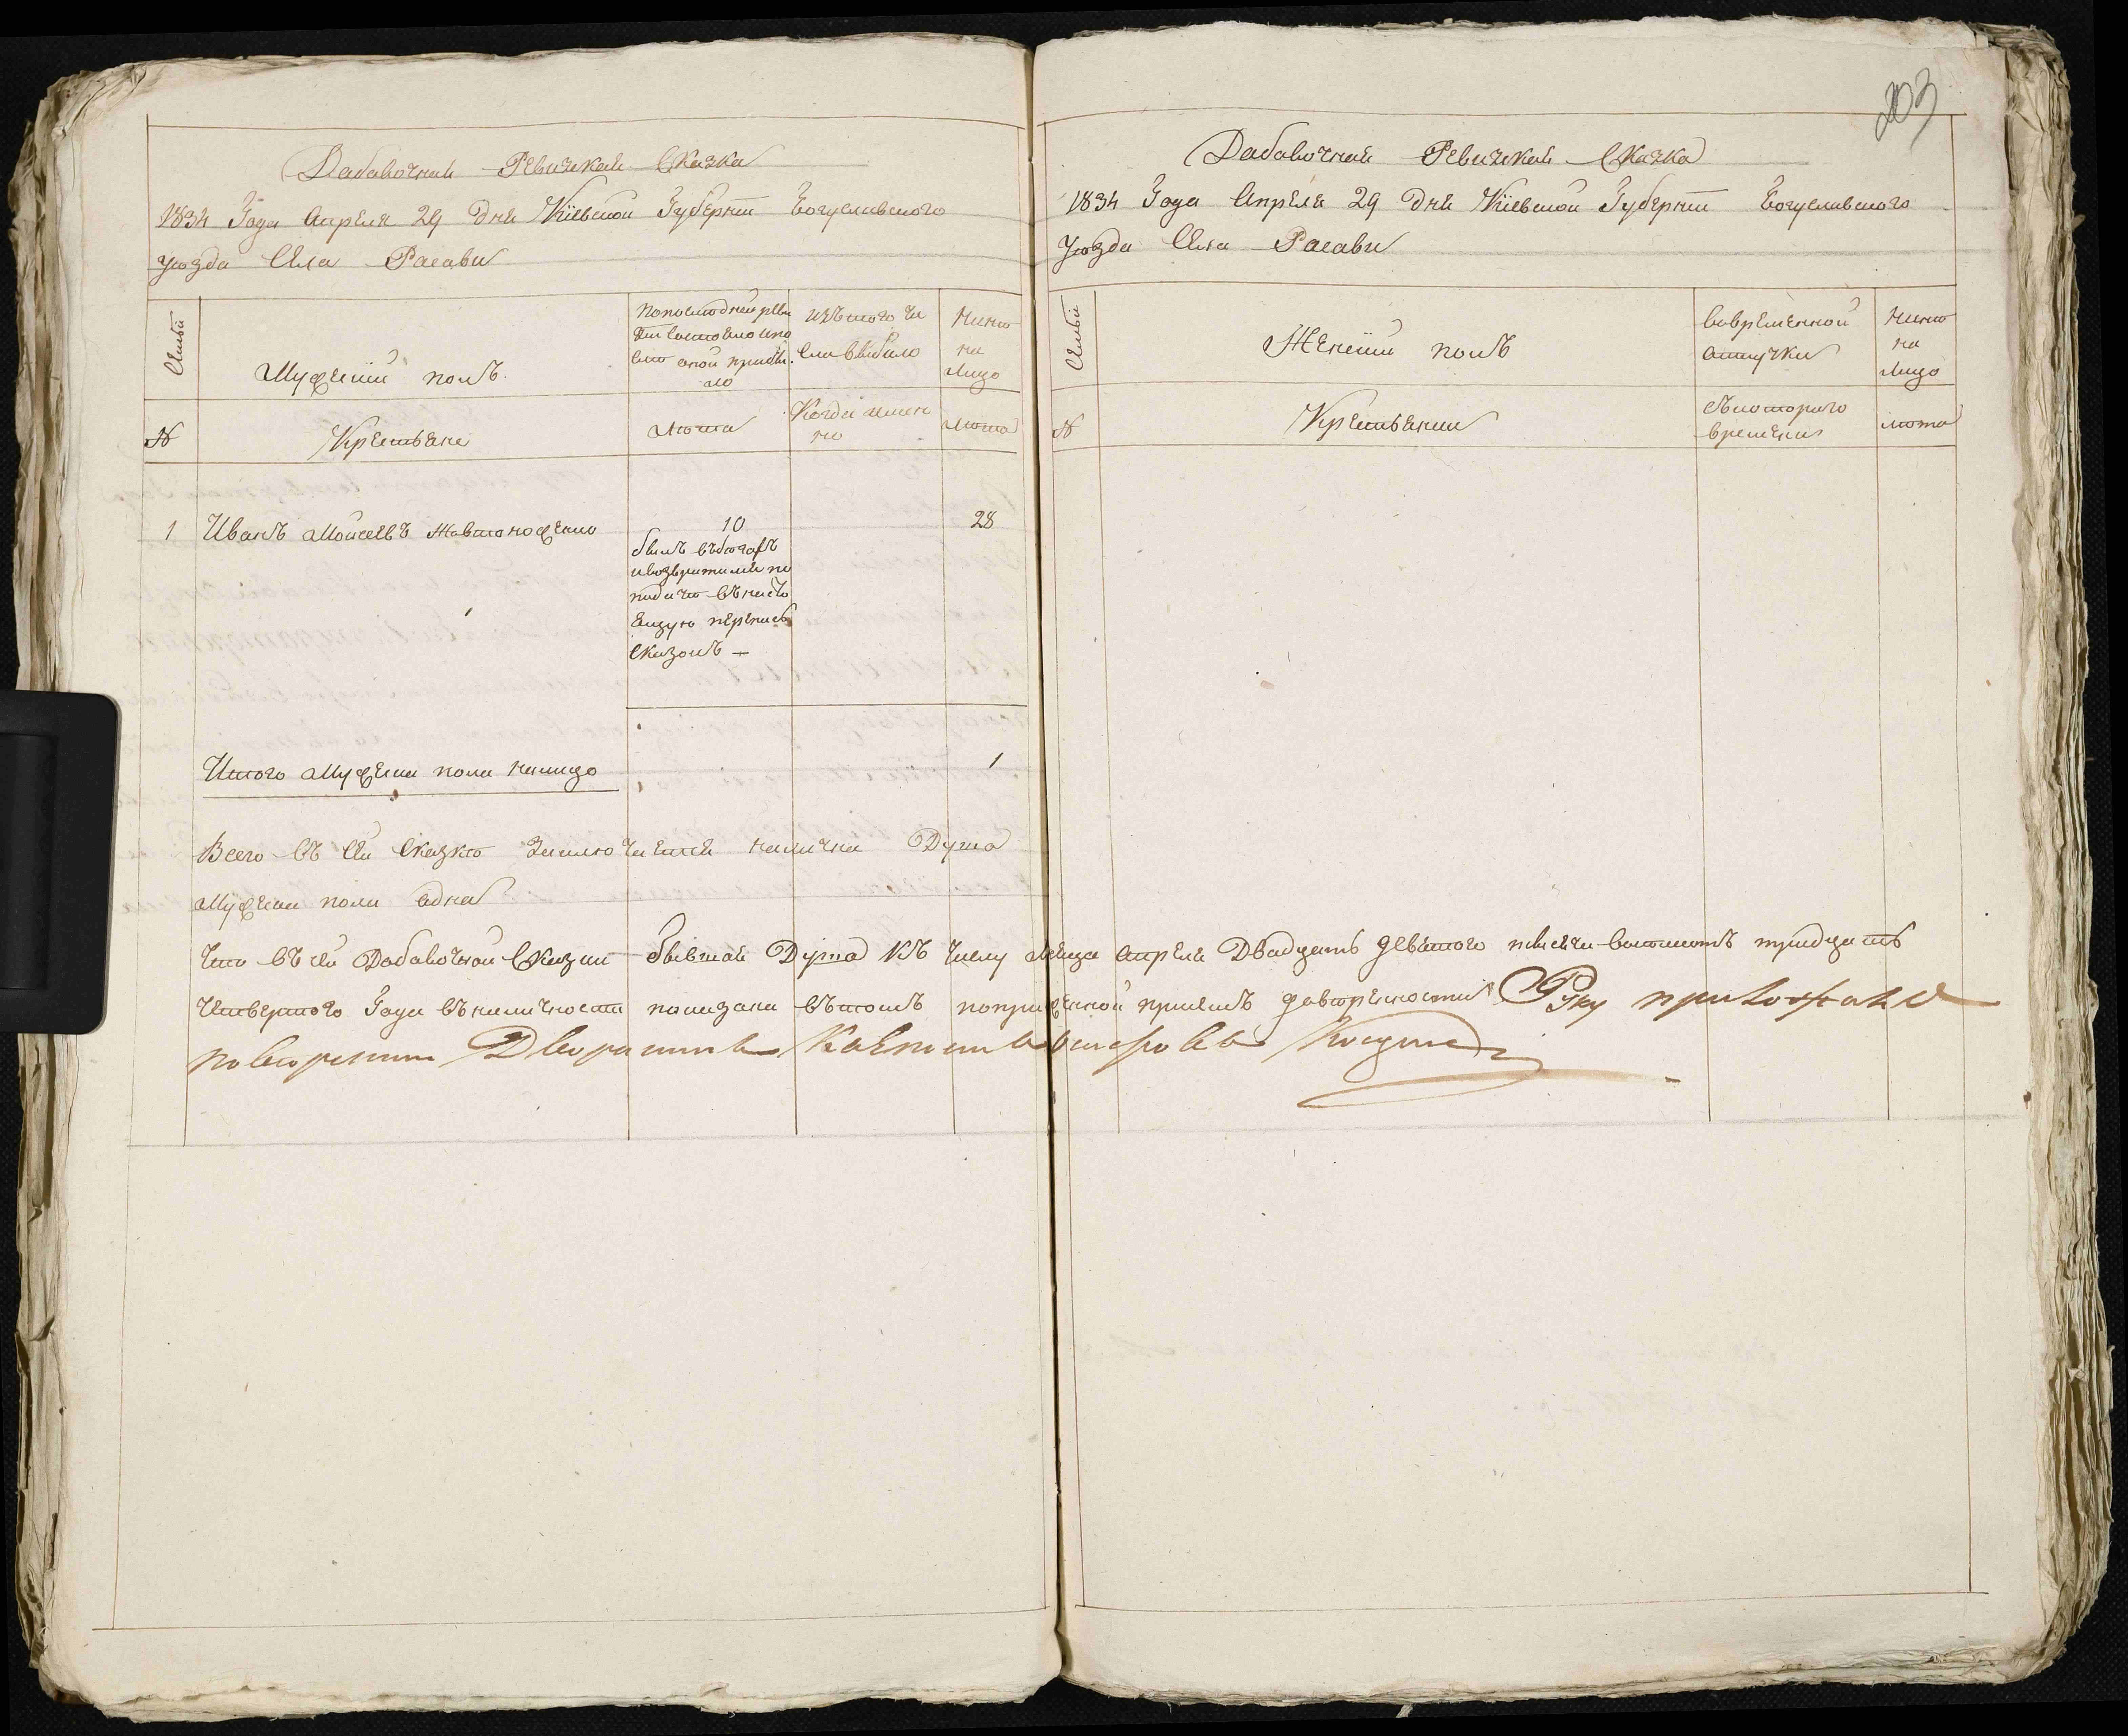 203
Дабавочная Ревизкая Сказка
1834 Года Апреля 29 дня Кіевской Губерніи Богуславского
уѣзда Села Расави
Семьи
Мужескій полъ.
по последней реви
зіи состояло и по
сле оной прибы
ло
изъ того чи
сла выбыло
Нынѣ
на
лицо
№
Крестьяне
лѣта
Когда имен
но
лѣта
1 Иванъ Моисеевъ Жавтоноженко 10 28
былъ въ бегахъ
и возвратился по
подачи въ насто
ящую перепись
сказокъ —
Итого мужеска пола налицо 1
Всего въ сей сказкѣ заключается налична Душа
мужеска пола адна
Дабавочная Ревизкая Сказка
1834 Года Апреля 29 дня Кіевской Губерніи Богуславского
уѣзда Села Расави
Семьи
Женскій полъ
во временной
атлучки
Нынѣ
на
лицо
№
Крестьянки
съ которого
времени
лѣта
Что въ сей Добавочной Сказки бывшая Душа къ числу месяца Апреля Двадцать девятого тысяча восемсотъ тридцать
четвертого Года въ наличности показана въ томъ по приложенной при семъ доверености Руку приложилъ
поверенный Дворянинъ